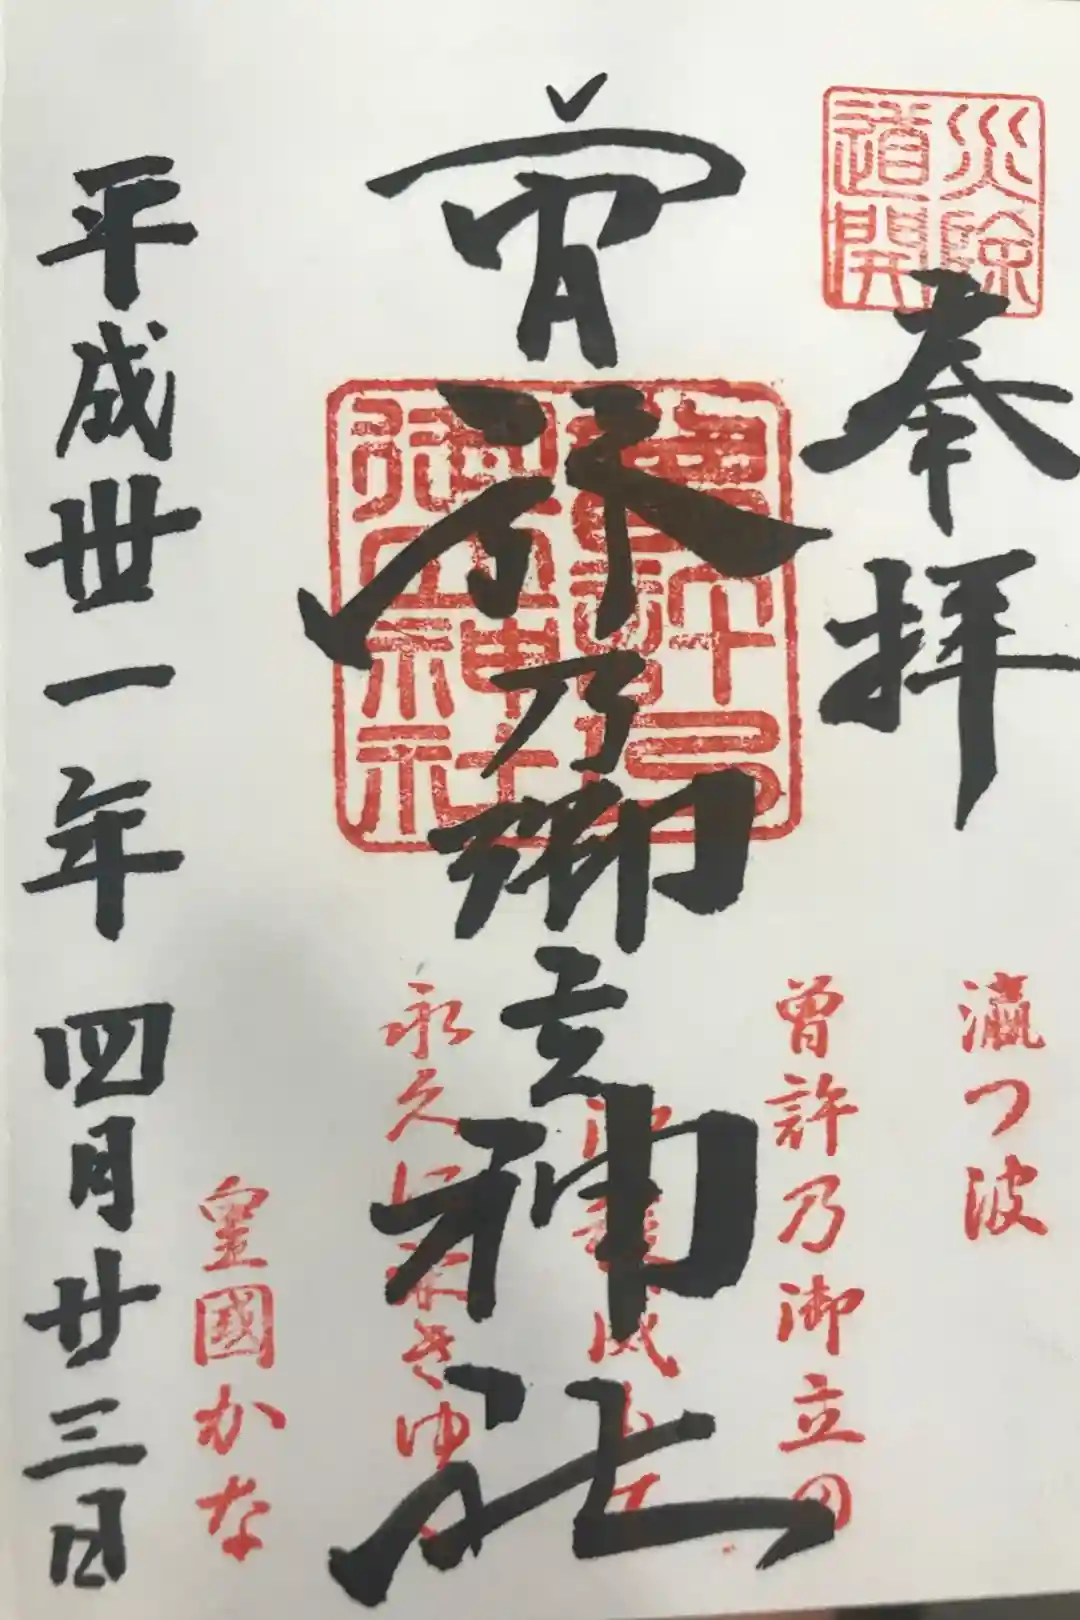 災除
道開
奉拝
曾許乃御立神社
曾許乃
御立神社
瀛つ波
曾許乃御立の
永久に栄きゆ
皇國かな
平成卅一年四月廿三日